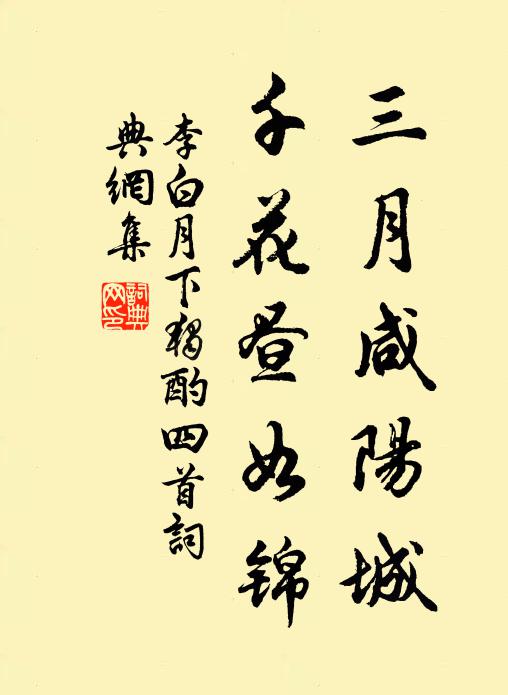 三月咸陽城
千花昼如锦
李白月下独酌四首詞
典網集
詞典
网印